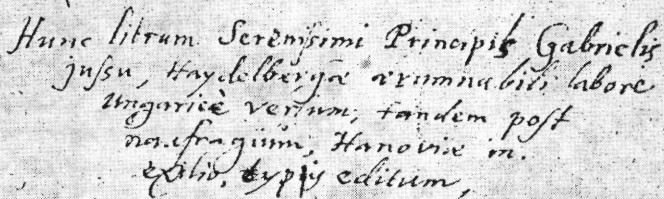 Hunc librum Serenissimi Principis Gabrielis
jussu, Haydelbergæ ærumnabili labore
ungaricè versum, tandem post
naufragium, Hanoviæ in
exilio, typis editum,